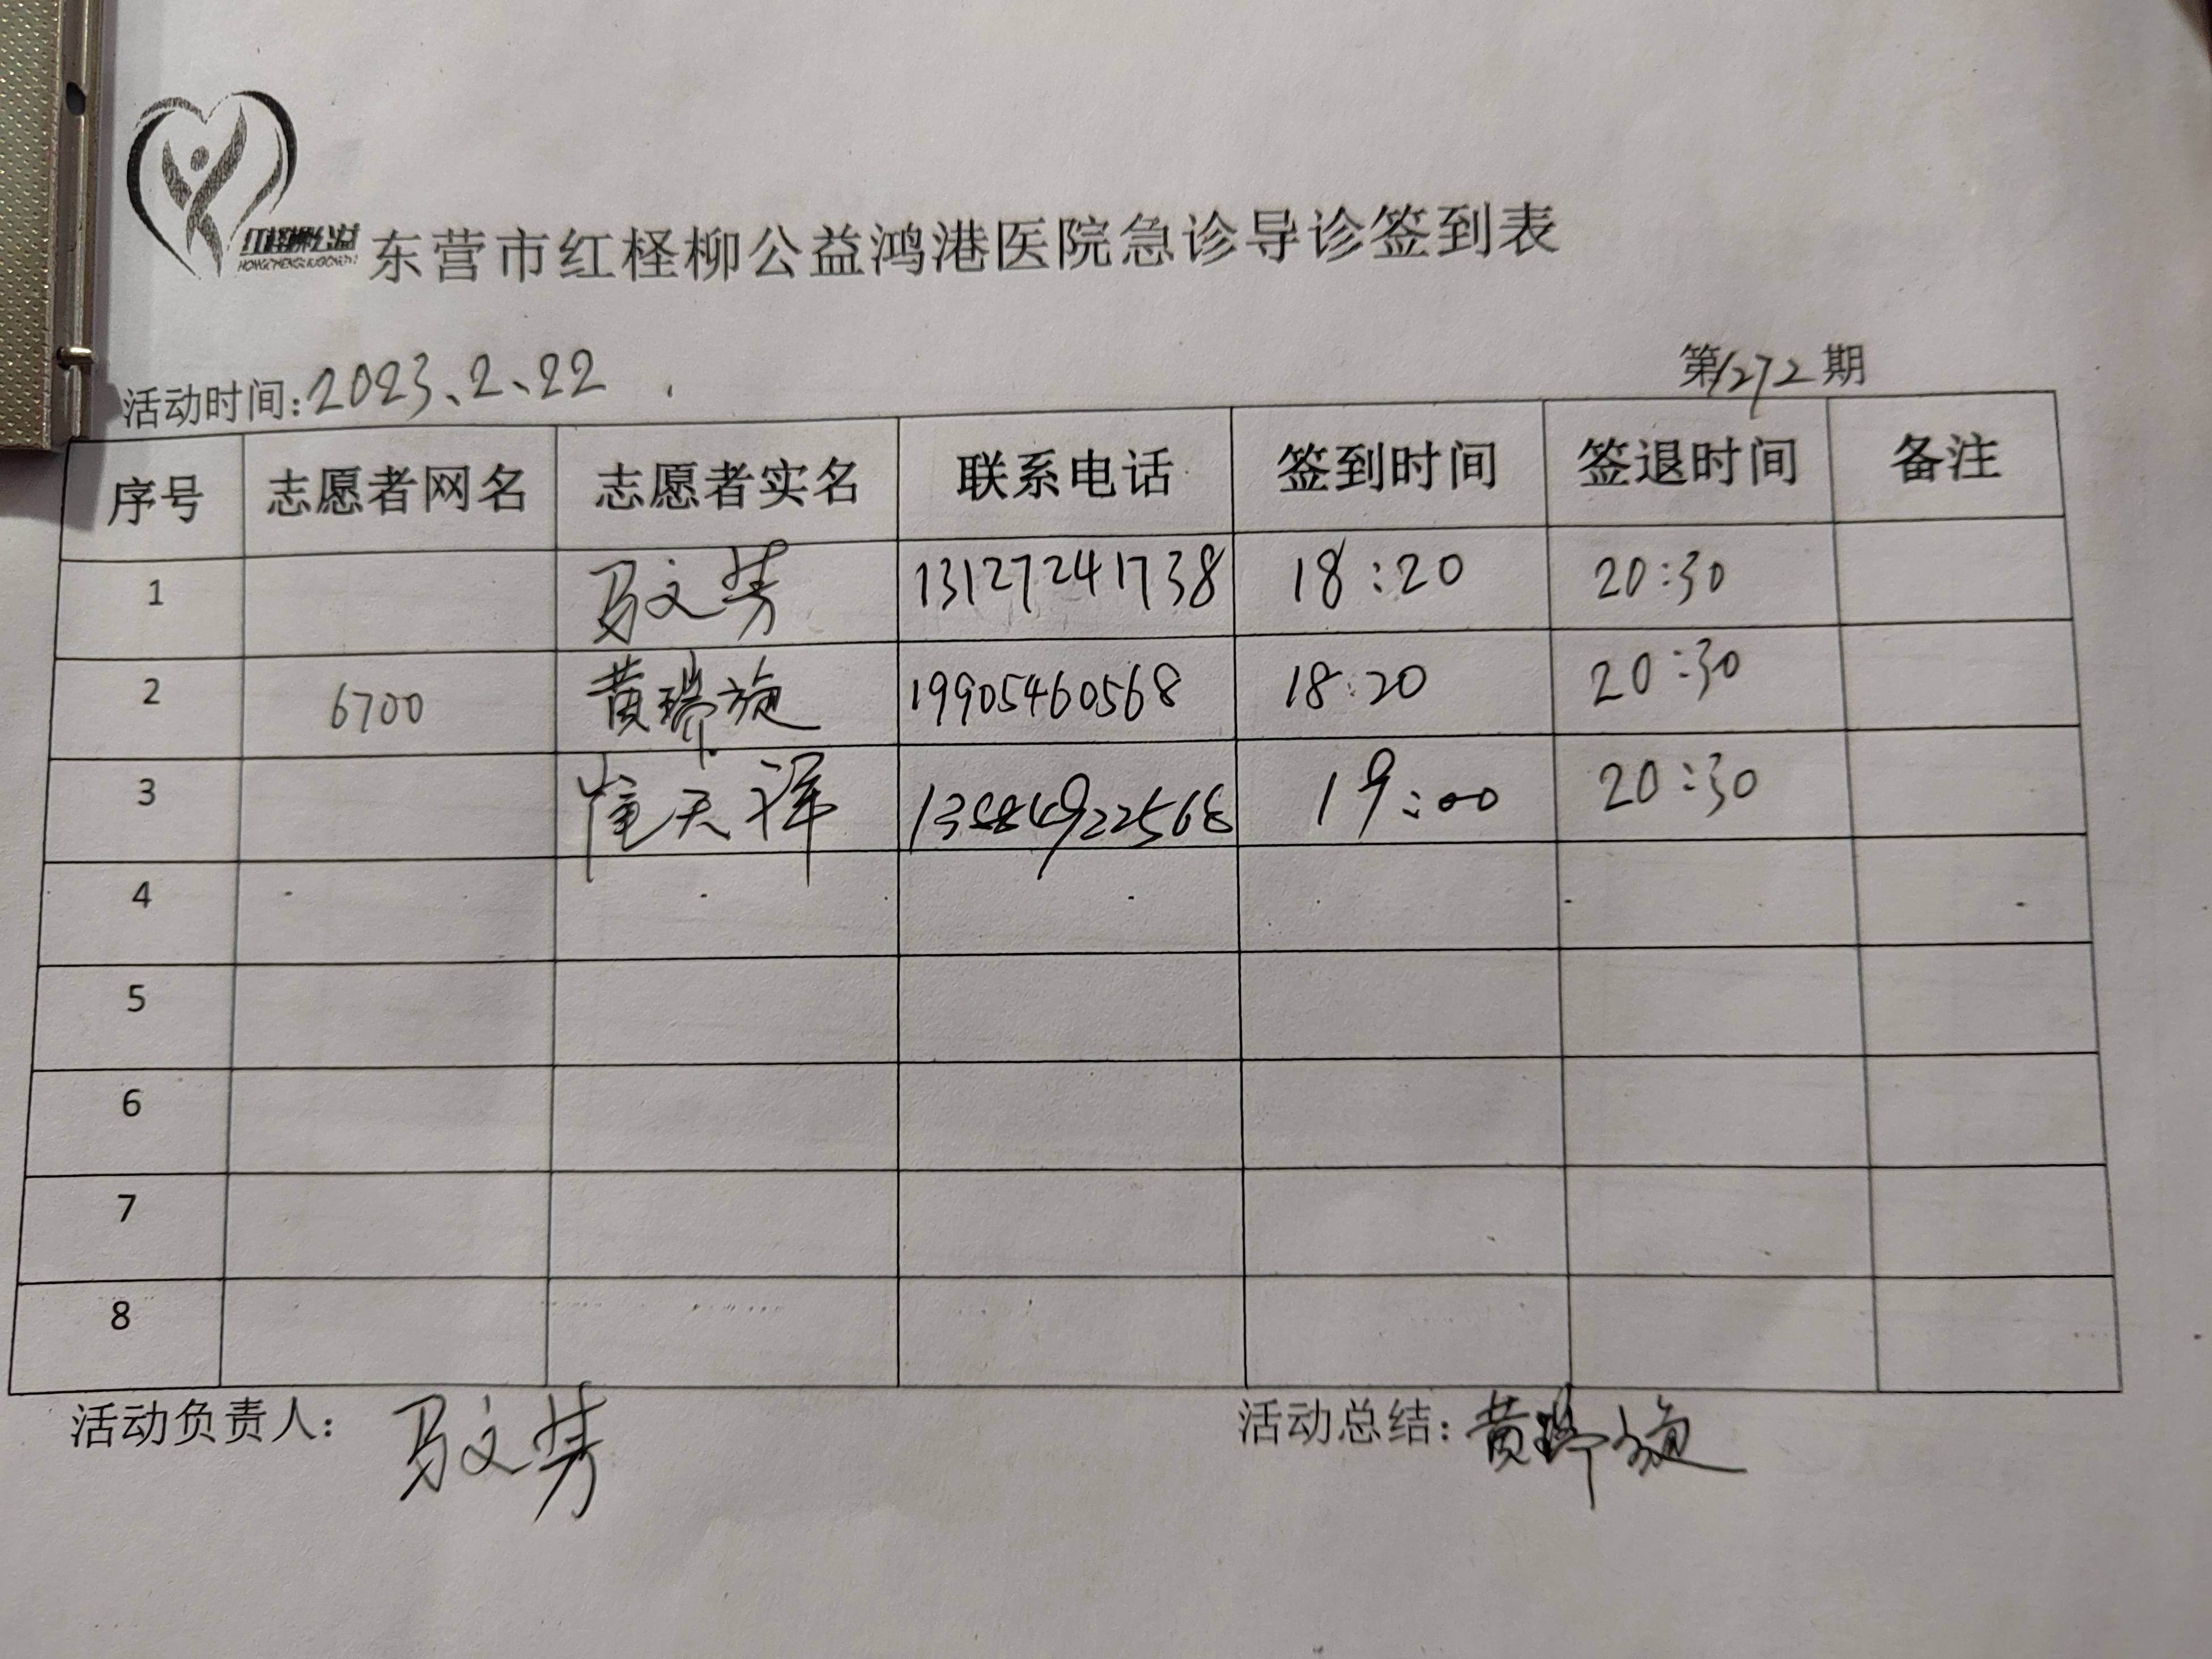 红柽柳公益
东营市红柽柳公益鸿港医院急诊导诊签到表
活动时间:2023、2、22
第1272期
序号 志愿者网名 志愿者实名 联系电话 签到时间 签退时间 备注
1 马文芳 13127241738 18:20 20:30
2 6700 黄瑞旋 19905460568 18:20 20:30
3 崔天祥 19:00 20:30
4
5
6
7
8
活动负责人: 马文芳
活动总结: 黄瑞旋